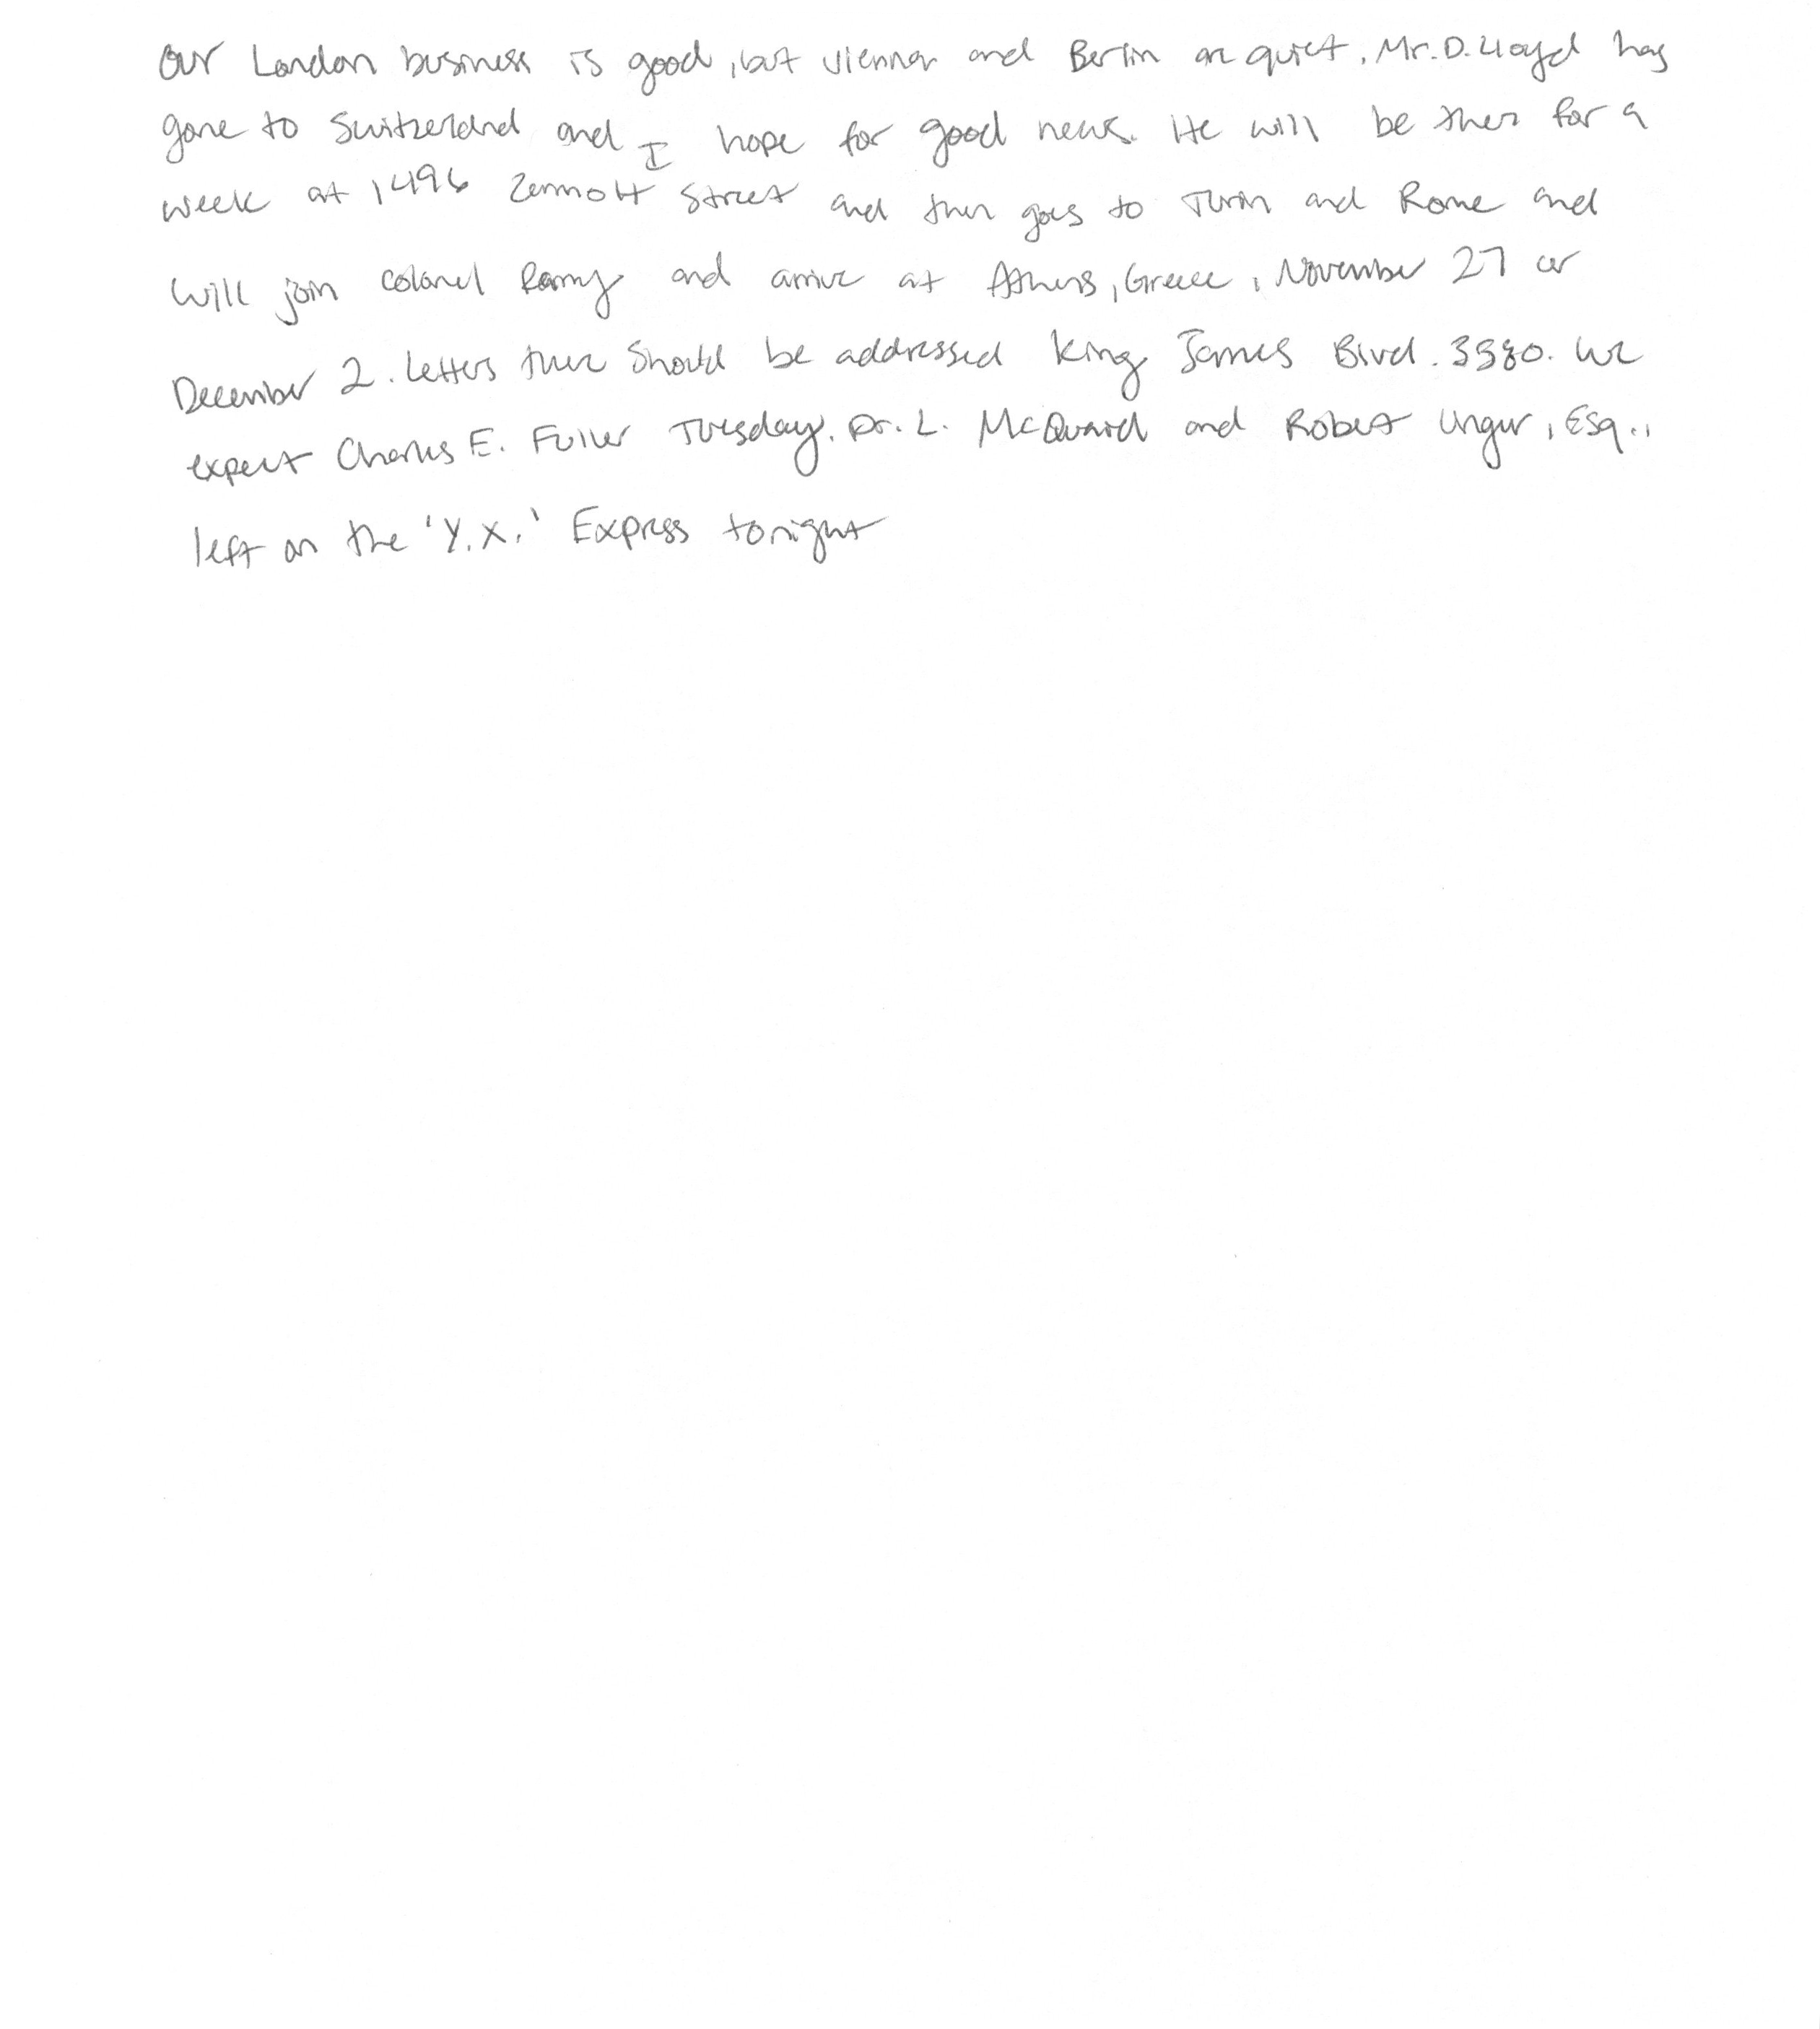 Our London business is good, but Vienna and Berlin are quiet. Mr. D. Lloyd has
gone to Switzerland and I hope for good news. He will be there for a
week at 1496 Zermott Street and then goes to Turin and Rome and
will join Colonel Parry and arrive at Athens, Greece, November 27 or
December 2. Letters there should be addressed King James Blvd. 3580. We
expect Charles E. Fuller Tuesday. Dr. L. McQuaid and Robert Unger, Esq.,
left on the 'Y.X.' Express tonight